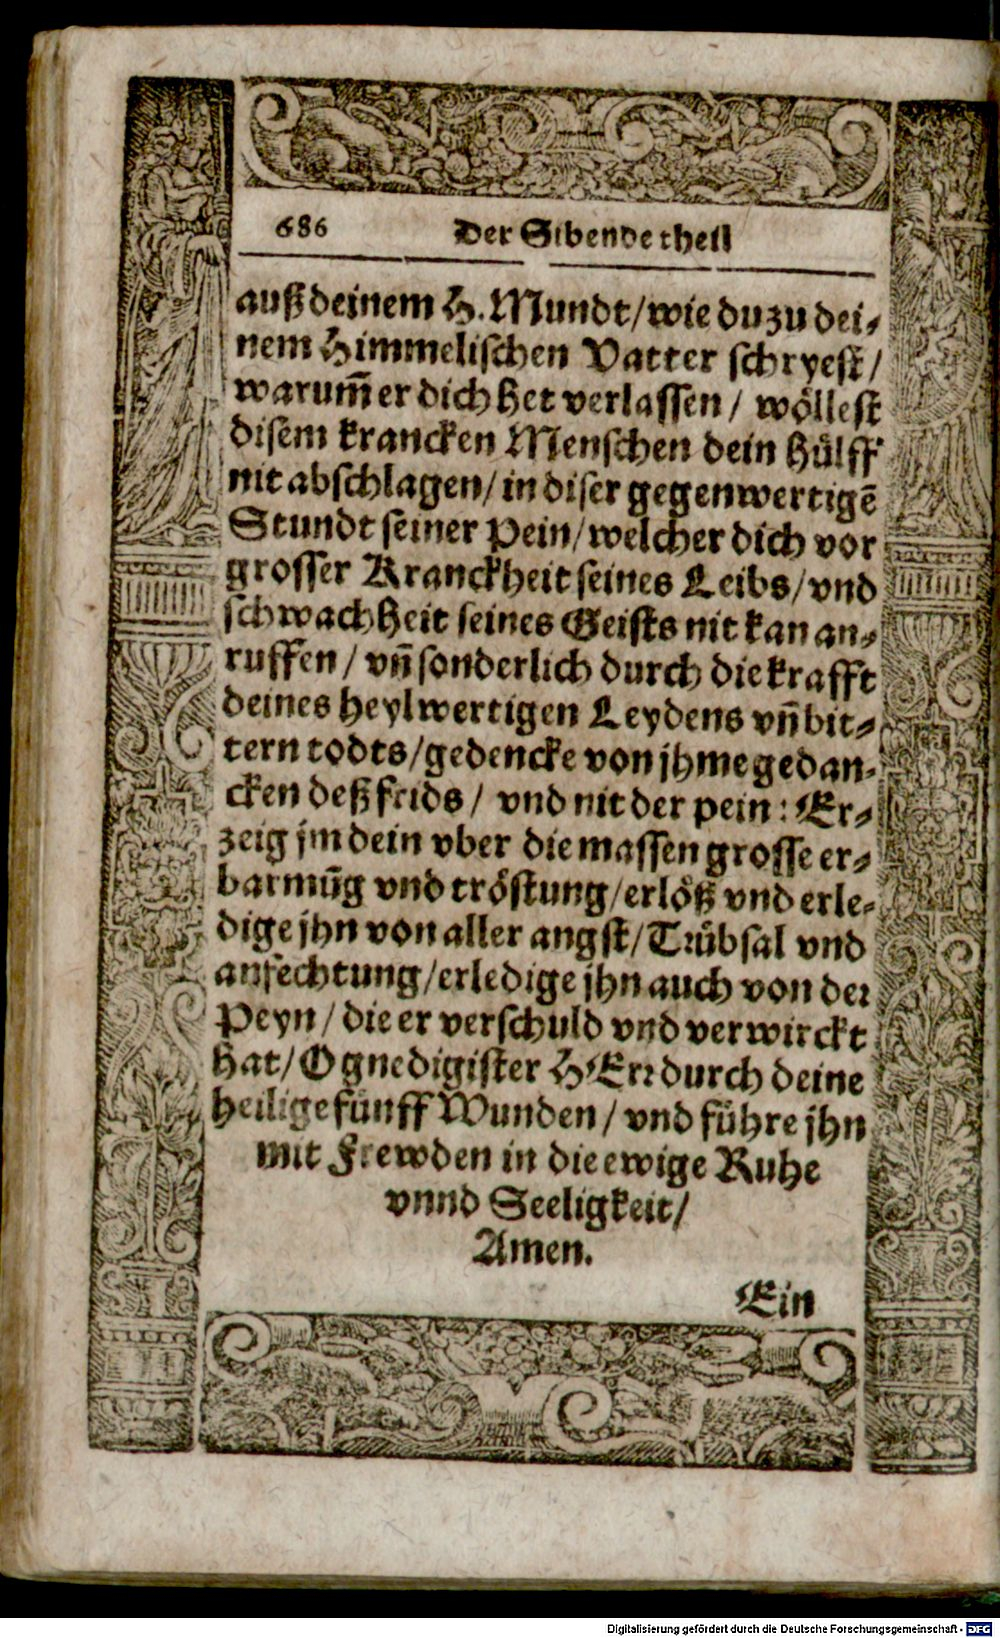 686 Der Sibende theil
auß deinem H. Mundt/ wie du zu dei⸗
nem Himmelischen Vatter schryest/
warum̃ er dich het verlassen/ wöllest
disem krancken Menschen dein hülff
nit abschlagen/ in diser gegenwertigẽ
Stundt seiner Pein/ welcher dich vor
grosser Kranckheit seines Leibs/ vnd
schwachheit seines Geists nit kan an⸗
ruffen/ vñ sonderlich durch die krafft
deines heylwertigen Leydens vñ bit⸗
tern todts/ gedencke von jhme gedan⸗
cken deß frids/ vnd nit der pein: Er⸗
zeig jm dein vber die massen grosse er⸗
barmũg vnd tröstung/ erlöß vnd erle⸗
dige jhn von aller angst/ Trübsal vnd
anfechtung/ erledige jhn auch von der
Peyn/ die er verschuld vnd verwirckt
hat/ O gnedigister HErr durch deine
heilige fünff Wunden/ vnd führe jhn
mit Frewden in die ewige Ruhe
vnnd Seeligkeit/
Amen.
Ein
Digitalisierung gefördert durch die Deutsche Forschungsgemeinschaft - DFG